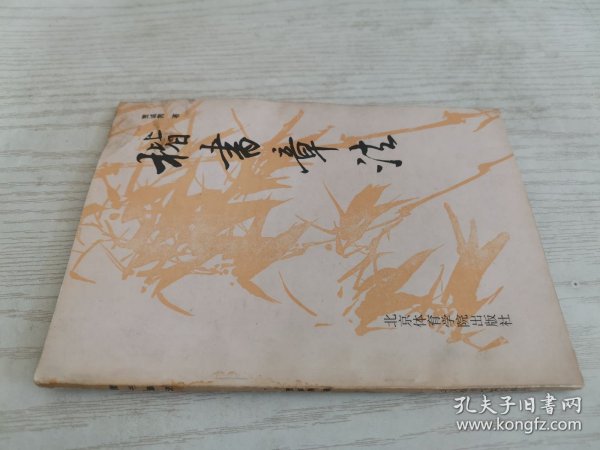 楷书章法
北京体育学院出版社
孔夫子旧书网
www.kongfz.com